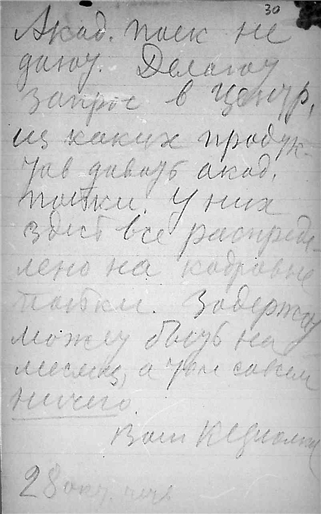 30
Акад. паек не
дают. Делают
запрос в центр,
из каких продук-
тов давать акад.
пайки. У них
здесь все распреде-
лено на кадровые
пайки. Задержка
может быть на
месяц, а там совсем
ничего.
Ваш КЦиолк
28 окт.